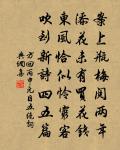 案上瓶梅閱兩年
插花未有買花錢
東風恰似憐窮客
吹到新詩四五篇
方回丙申元日五絕詞
典網集